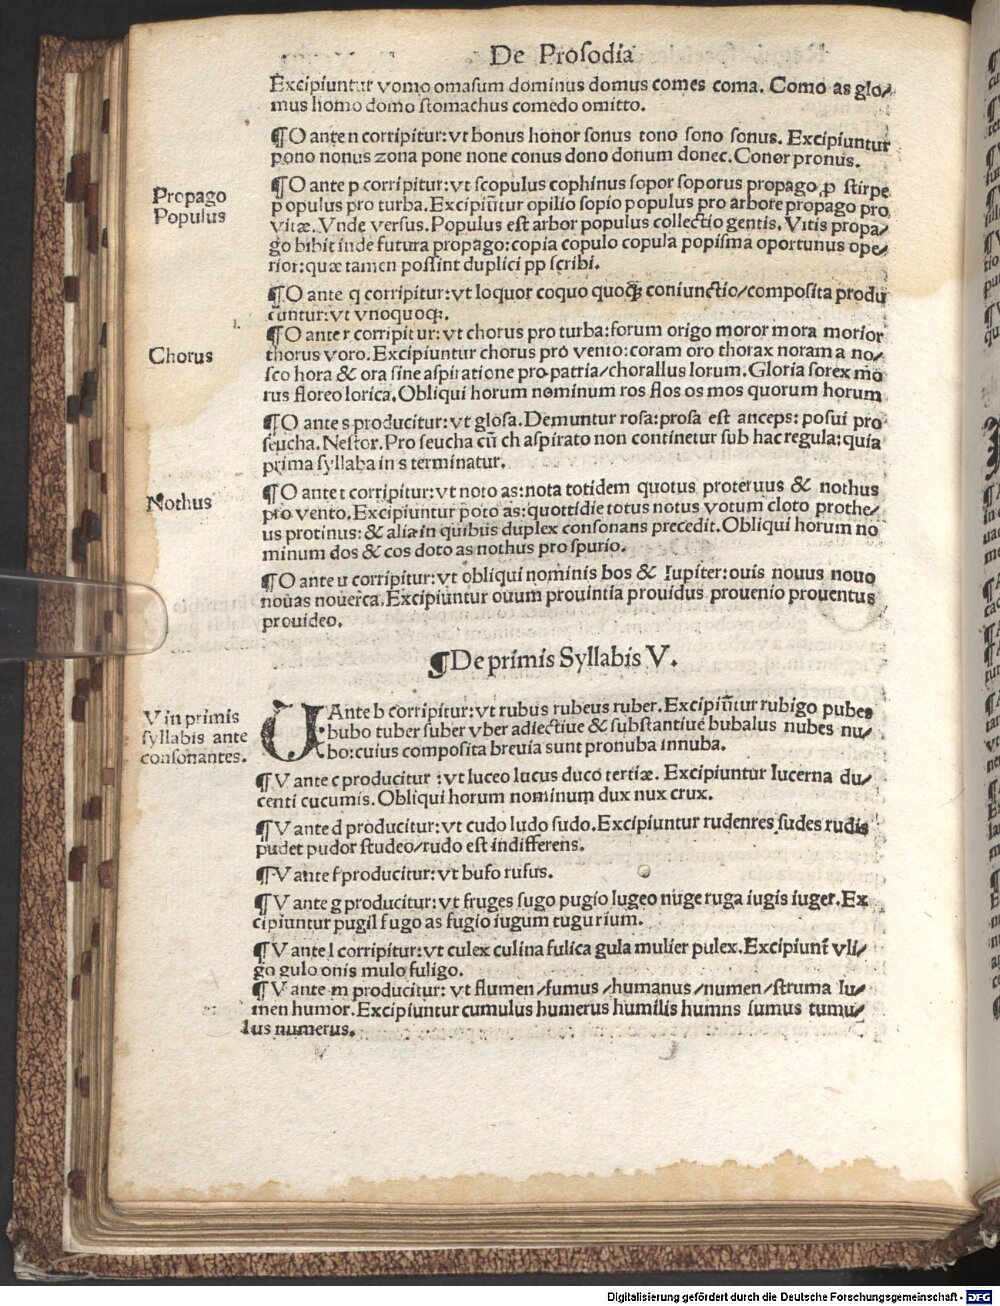 De Prosodia
Excipiuntur vomo omasum dominus domus comes coma. Como as glo/
mus homo domo stomachus comedo omitto.
¶O ante n corripitur: vt bonus honor sonus tono sono sonus. Excipiuntur
pono nonus zona pone none conus dono donum donec. Conor pronus.
Propago
Populus
¶O ante p corripitur: vt scopulus cophinus sopor soporus propago ꝓ stirpe
populus pro turba. Excipiūtur opilio sopio populus pro arbore propago pro
vitæ. Vnde versus. Populus est arbor populus collectio gentis. Vitis propa/
go bibit inde futura propago: copia copulo copula popisma oportunus ope/
rior: quæ tamen possint duplici pp scribi.
¶O ante q corripitur: vt loquor coquo quoqꝫ coniunctio/composita produ
cuntur: vt vnoquoqꝫ.
Chorus
¶O ante r corripitur: vt chorus pro turba: forum origo moror mora morior
thorus voro. Excipiuntur chorus pro vento: coram oro thorax noram a no/
sco hora & ora sine aspiratione pro patria/chorallus lorum. Gloria sorex mō
rus floreo lorica. Obliqui horum nominum ros flos os mos quorum horum
¶O ante s producitur: vt glosa. Demuntur rosa: prosa est anceps: posui pro
seucha. Nestor. Pro seucha cū ch aspirato non continetur sub hac regula: quia
prima syllaba in s terminatur.
Nothus
¶O ante t corripitur: vt noto as: nota totidem quotus proteruus & nothus
pro vento. Excipiuntur poto as: quottidie totus notus votum cloto prothe/
us protinus: & alia in quibus duplex consonans precedit. Obliqui horum no
minum dos & cos doto as nothus pro spurio.
¶O ante u corripitur: vt obliqui nominis bos & Iupiter: ouis nouus nouo
nouas nouerca. Excipiuntur ouum prouintia prouidus prouenio prouentus
prouideo.
¶De primis Syllabis V.
V in primis
syllabis ante
consonantes.
V Ante b corripitur: vt rubus rubeus ruber. Excipiūtur rubigo pubes
bubo tuber suber vber adiectiue & substantiue bubalus nubes nu/
bo: cuius composita breuia sunt pronuba innuba.
¶V ante c producitur: vt luceo lucus duco tertiæ. Excipiuntur lucerna du/
centi cucumis. Obliqui horum nominum dux nux crux.
¶V ante d producitur: vt cudo ludo sudo. Excipiuntur rudenres sudes rudis
pudet pudor studeo/rudo est indifferens.
¶V ante f producitur: vt bufo rufus.
¶V ante g producitur: vt fruges sugo pugio lugeo nuge ruga iugis iuger. Ex
cipiuntur pugil fugo as fugio iugum tugurium.
¶V ante l corripitur: vt culex culina fulica gula mulier pulex. Excipiunt̄ vli/
go gulo onis mulo fuligo.
¶V ante m producitur: vt flumen/fumus/humanus/numen/struma lu/
men humor. Excipiuntur cumulus humerus humilis humns sumus tumu/
lus numerus.
Digitalisierung gefördert durch die Deutsche Forschungsgemeinschaft - DFG